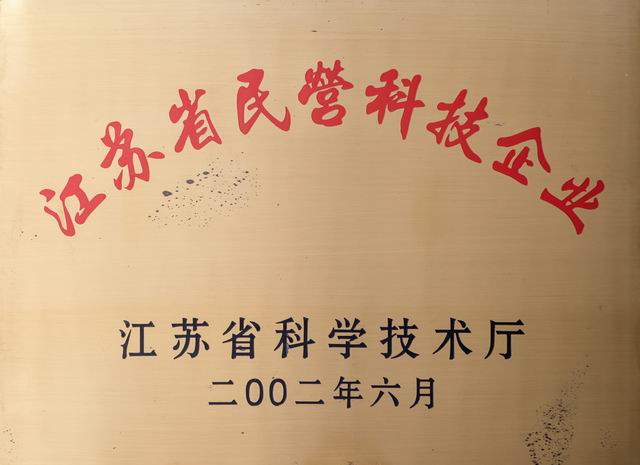 江苏省民营科技企业
江苏省科学技术厅
二00二年六月